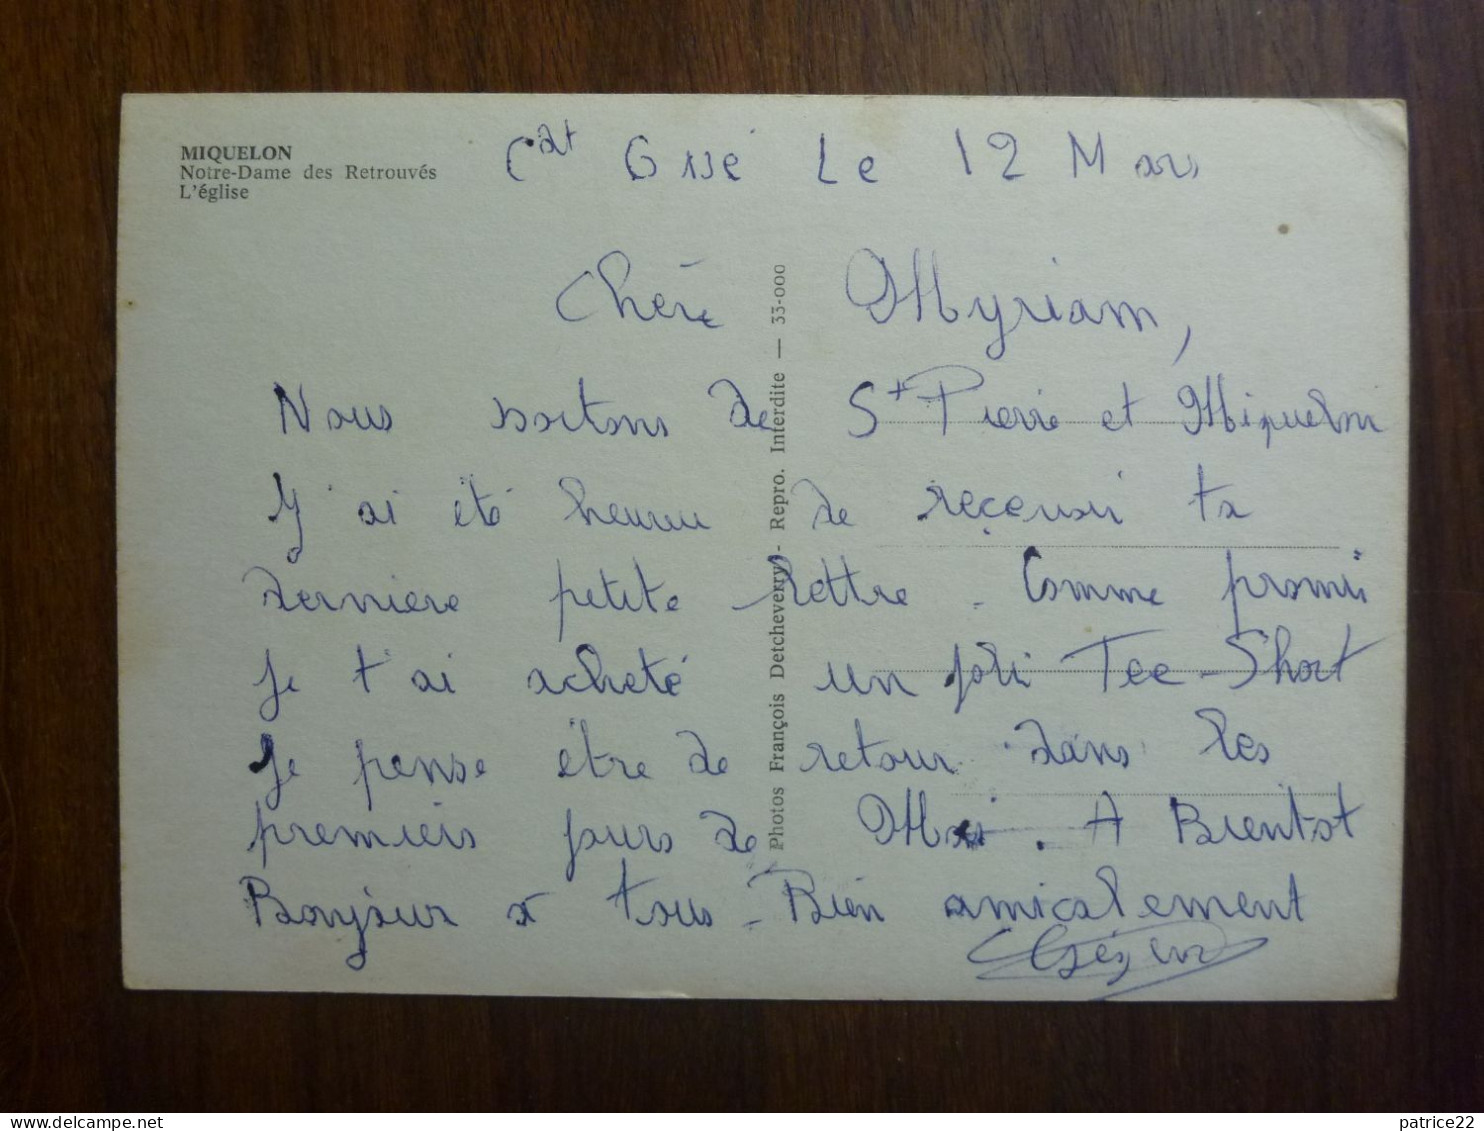 MIQUELON
Notre-Dame des Retrouvés
L'église
Le 12 Mars
Chère Myriam,
Nous sortons de St Pierre et Miquelon
J'ai été heureu de reçevoir ta
dernière petite lettre - Comme promis
je t'ai acheté un joli Tee-Short
Je pense être de retour dans les
premiers jours de Mai. A Bientot
Bonjour a tous - Bien amicalement
Photos François Detcheverry - Repro. Interdite — 33-000
patrice22